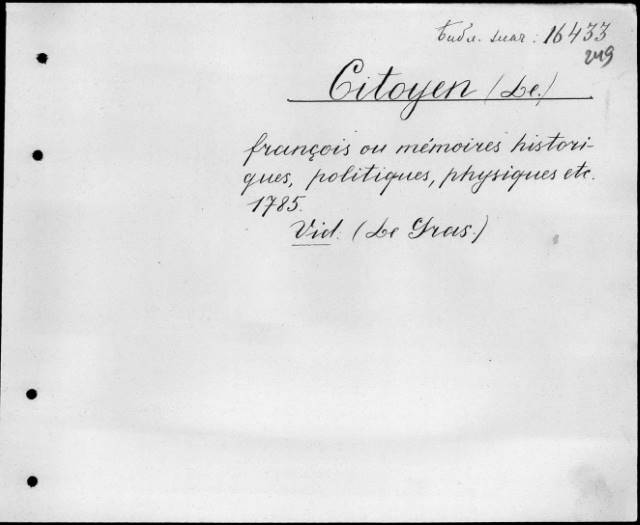 Библ. знач: 16433
249
Citoyen (Le.)
françois ou mémoires histori-
ques, politiques, physiques etc.
1785.
Vid. (Le Gras.)